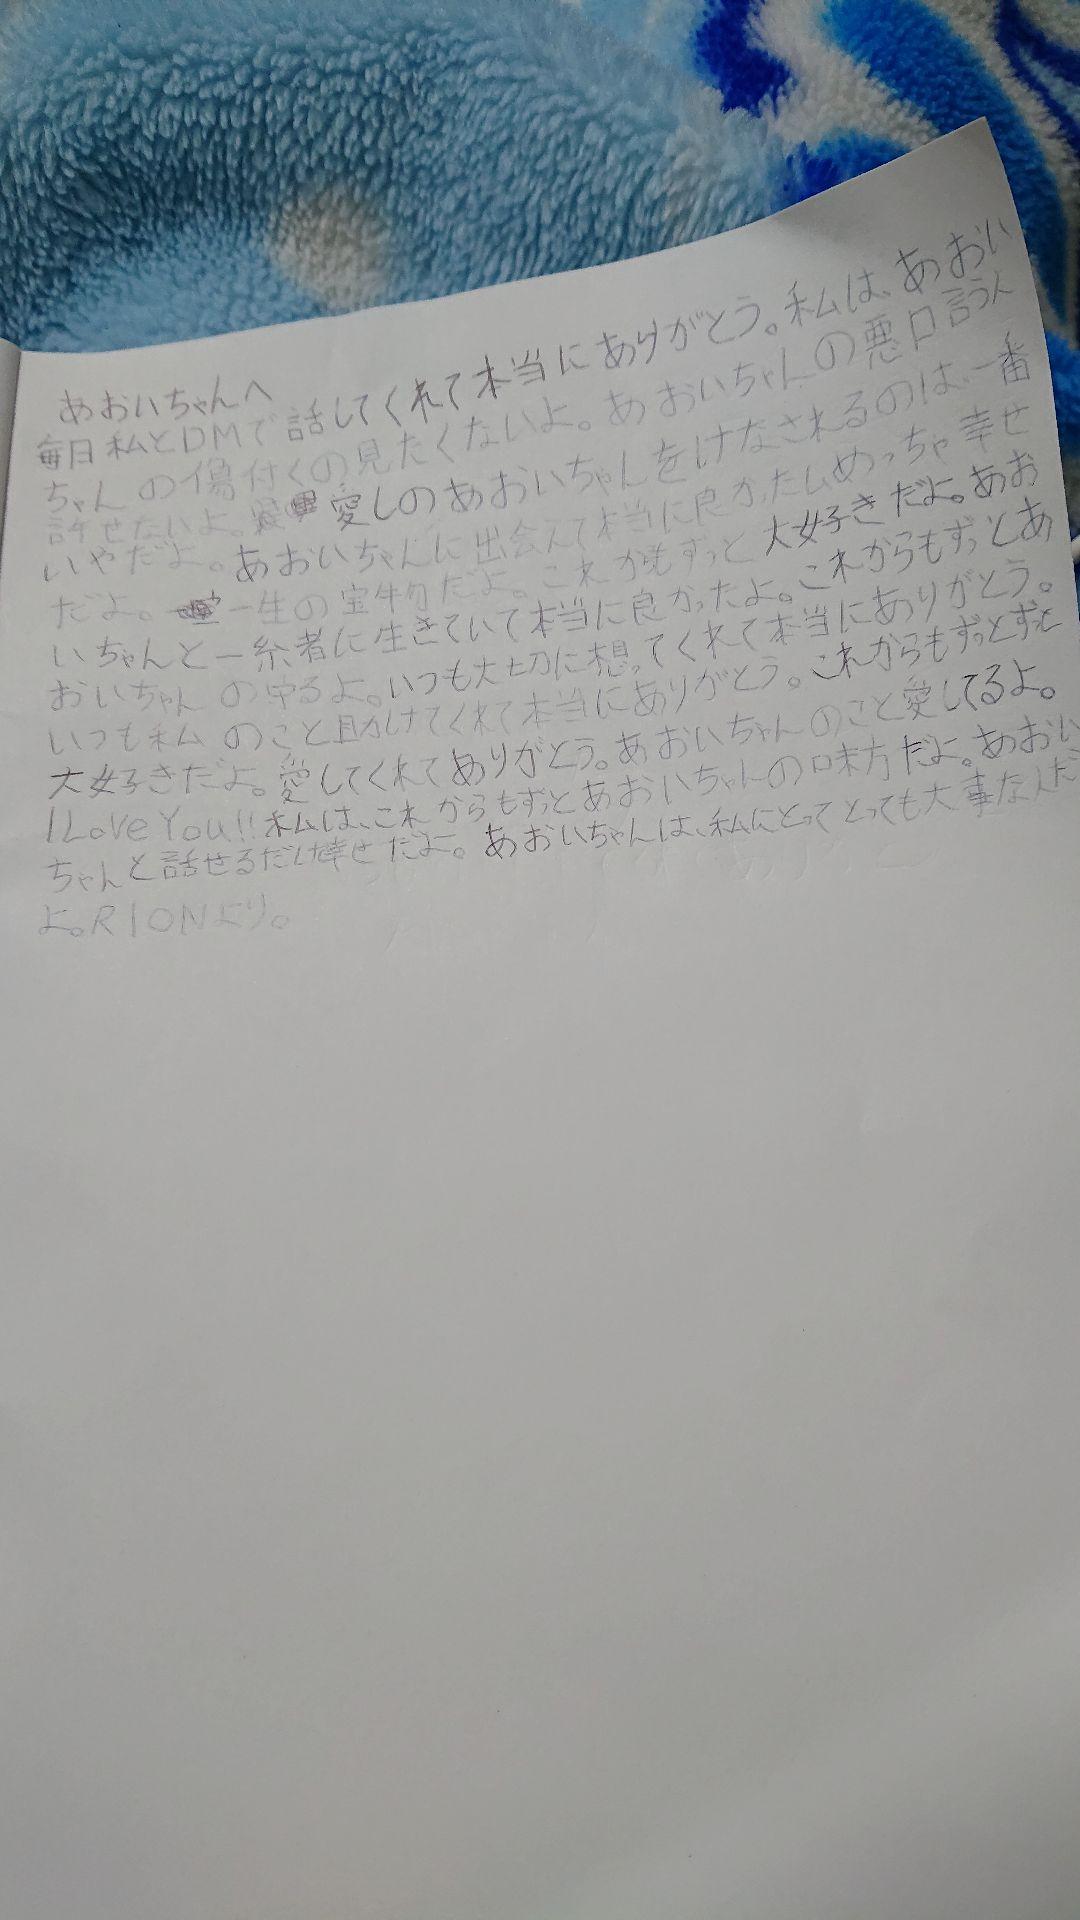 あおいちゃんへ
毎日私とDMで話してくれて本当にありがとう。私は、あおい
ちゃんの傷付くの見たくないよ。あおいちゃんの悪口言う人
許せないよ。愛しのあおいちゃんをけなされるのは、一番
いやだよ。あおいちゃんに出会えて本当に良かったしめっちゃ幸せ
だよ。一生の宝物だよ。これからもずっと大好きだよ。あお
いちゃんと一緒に生きていて本当に良かったよ。これからもずっとあ
おいちゃんの守るよ。いつも大切に想ってくれて本当にありがとう。
いつも私のこと助けてくれて本当にありがとう。これからもずっとずっと
大好きだよ。愛してくれてありがとう。あおいちゃんのこと愛してるよ。
I Love You!!私は、これからもずっとあおいちゃんの味方だよ。あおい
ちゃんと話せるだけ幸せだよ。あおいちゃんは、私にとってとっても大事な人だ
よ。RIONより。